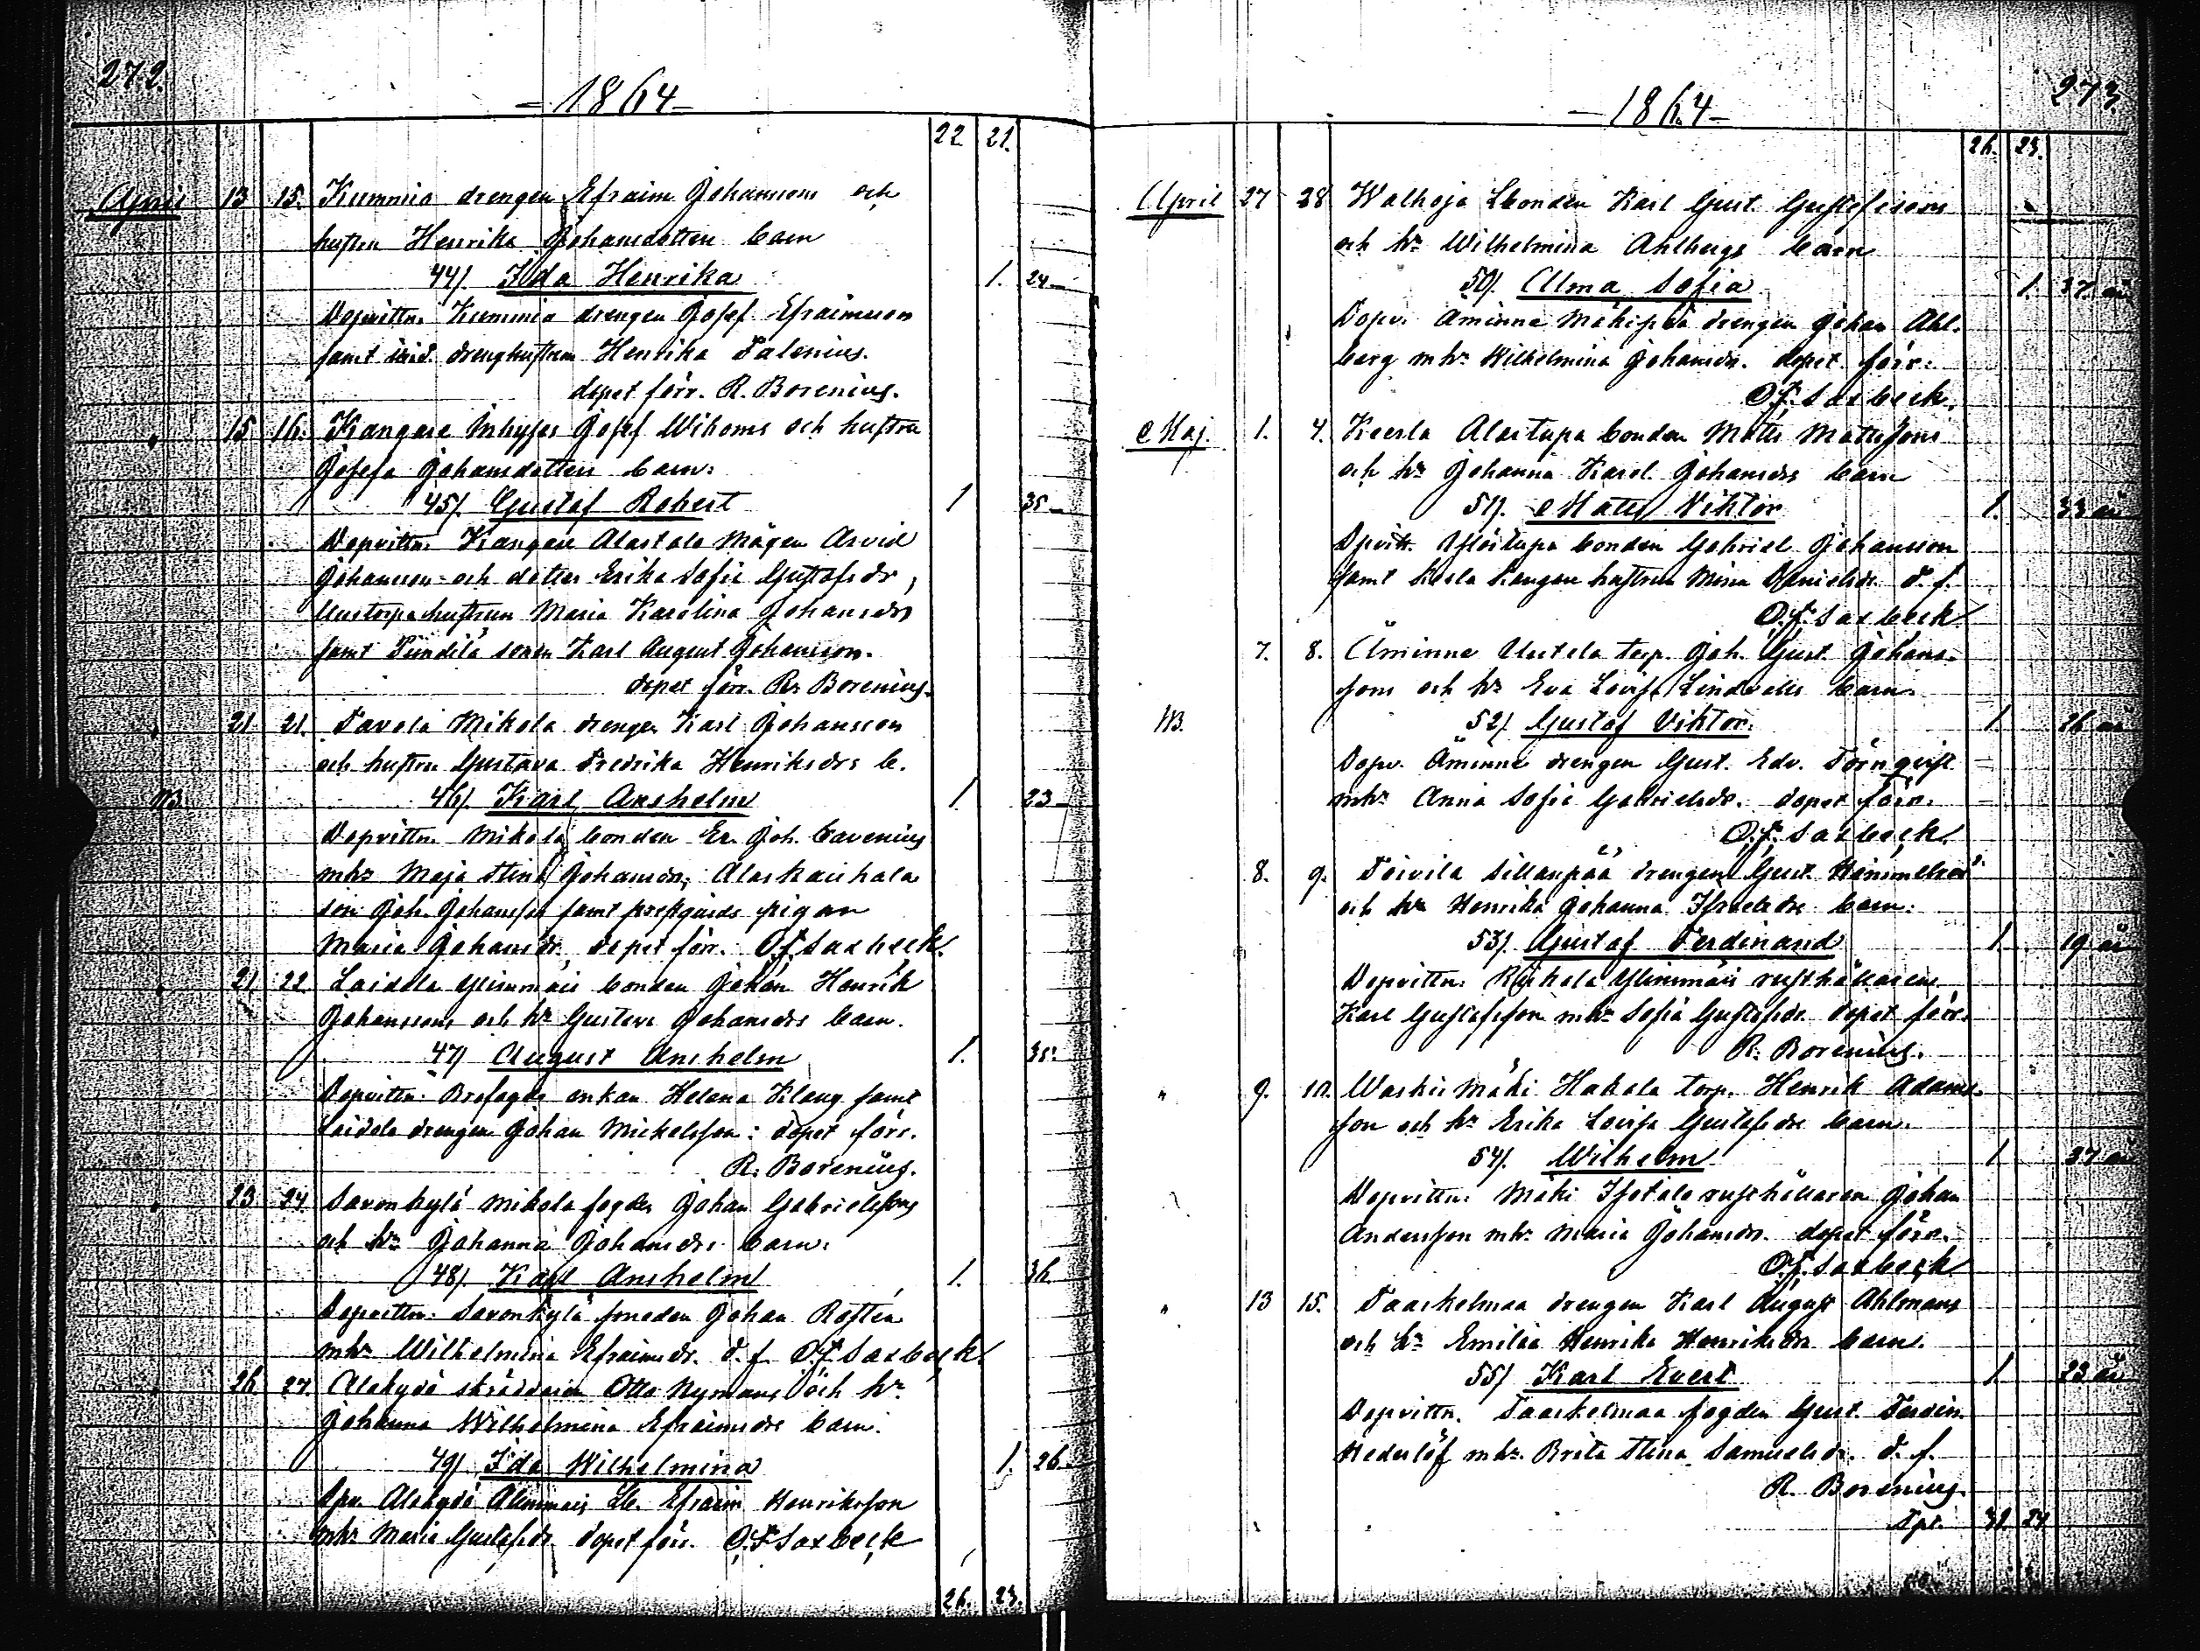 272.
- 1864 -
22. 21.
April 13 15. Kumnia drengen Efraim Johanssons och
hustru Henrika Johansdotters barn
44). Ida Henrika 1. 24
Dopvittn. Kumnia drengen Josef Efraimsson
samt ibid. drenghustrun Henrika Palenius.
dopet förr. R. Borenius.
15 16. Kangare Inhyses Josef Wikoms och hustru
Josefa Johansdotters barn.
45). Gustaf Robert 1 35
Dopvittn. Kangare Alastalo mågen Arvid
Johansson och dotter Erika Sofia Gustafsdr,
hustrun Maria Karolina Johansdr
samt sonen Karl August Johansson.
dopet förr. R. Borenius.
21 21. Tavola Mikola drengen Karl Johansson
och hustru Gustava Fredrika Henriksdrs b.
NB. 46). Karl Anshelm 1. 23
Dopvittn. Mikola bonden Er. Joh. Cavenius
mhr Maja Stina Johansdr, Alaskaihala
son Joh. Johansson samt prestgårds pigan
Maria Johansdr. dopet förr. O.F. Saxbeck.
21. 22. Laidola Ylimmäis bonden Johan Henrik
Johanssons och hr Gustava Johansdrs barn.
47) August Anshelm 1. 35.
Dopvittn. enkan Helena Klang samt
Laidola drengen Johan Mickelsson: dopet förr.
R. Borenius.
23 24 Savonkylä Mikola fogden Johan Gabrielssons
och hr Johanna Johansdrs barn.
48). Karl Anshelm 1. 36
Dopvittn. Savonkylä smeden Johan Rostén
mhr Wilhelmina Efraimsdr. d. f. O.F. Saxbeck.
26 27. Alakydö skräddaren Otto Nymans och hr
Johanna Wilhelmina Efraimsdrs barn.
49) Ida Wilhelmina 1. 26
Dpv. Alakydö Alimmais Lb. Efraim Henriksson
mhr Maria Gustafsdr. dopet förr. O.F. Saxbeck
26. 23.
273
- 1864 -
26. 23.
April 27 28 Walhoja Lbonden Karl Gust. Gustafssons
och hr Wilhelmina Ahlbergs barn
50). Alma Sofia 1. 37 år
Dopv. Åminne Mäkipää drengen Johan Ahl-
berg mhr Wilhelmina Johansdr. dopet förr.
O.F. Saxbeck.
Maj. 1. 4. Keerla Alastupa bonden Matts Mattssons
och hr Johanna Karol. Johansdrs barn
51). Matts Viktor 1. 33 år
Dpvitt. Ylöstupa bonden Gabriel Johansson
samt Keerla Kangare hustrun Mina Danielsdr. d. f.
O.F. Saxbeck
7. 8. Åminne Uutela torp. Joh. Gust. Johans-
sons och hr Eva Lovisa Lindvalls barn.
NB. 52). Gustaf Viktor. 1. 26 år
Dopv. Åminne drengen Gust. Edv. Törnqvist
mhr Anna Sofia Gabrielsdr. dopet förr.
O.F. Saxbeck.
8. 9. Toivila Sillanpää drengen Gust. Himmelroos
och hr Henrika Johanna Israelsdrs barn.
53). Gustaf Ferdinand 1. 19 år
Dopvittn. Ylimmäis rusthållaren
Karl Gustafsson mhr Sofia Gustafsdr. dopet förr.
R. Borenius.
" 9. 10. Waskis Mäki Hakala torp. Henrik Adams-
son och hr Erika Lovisa Gustafsdrs barn.
54). Wilhelm 1. 37 år
Dopvittn. Mäki Isotalo rusthållaren Johan
Andersson mhr Maria Johansdr. dopet förr.
O.F. Saxbeck
" 13 15. Paaskelmaa drengen Karl August Ahlmans
och hr Emilia Henrika Henriksdrs barn.
55) Karl Evert 1. 23 år
Dopvittn. Paaskelmaa fogden Gust. Ferdin.
Hederlöf mhr. Brita Stina Samuelsdr. d. f.
R. Borenius.
Tpt. 31. 24